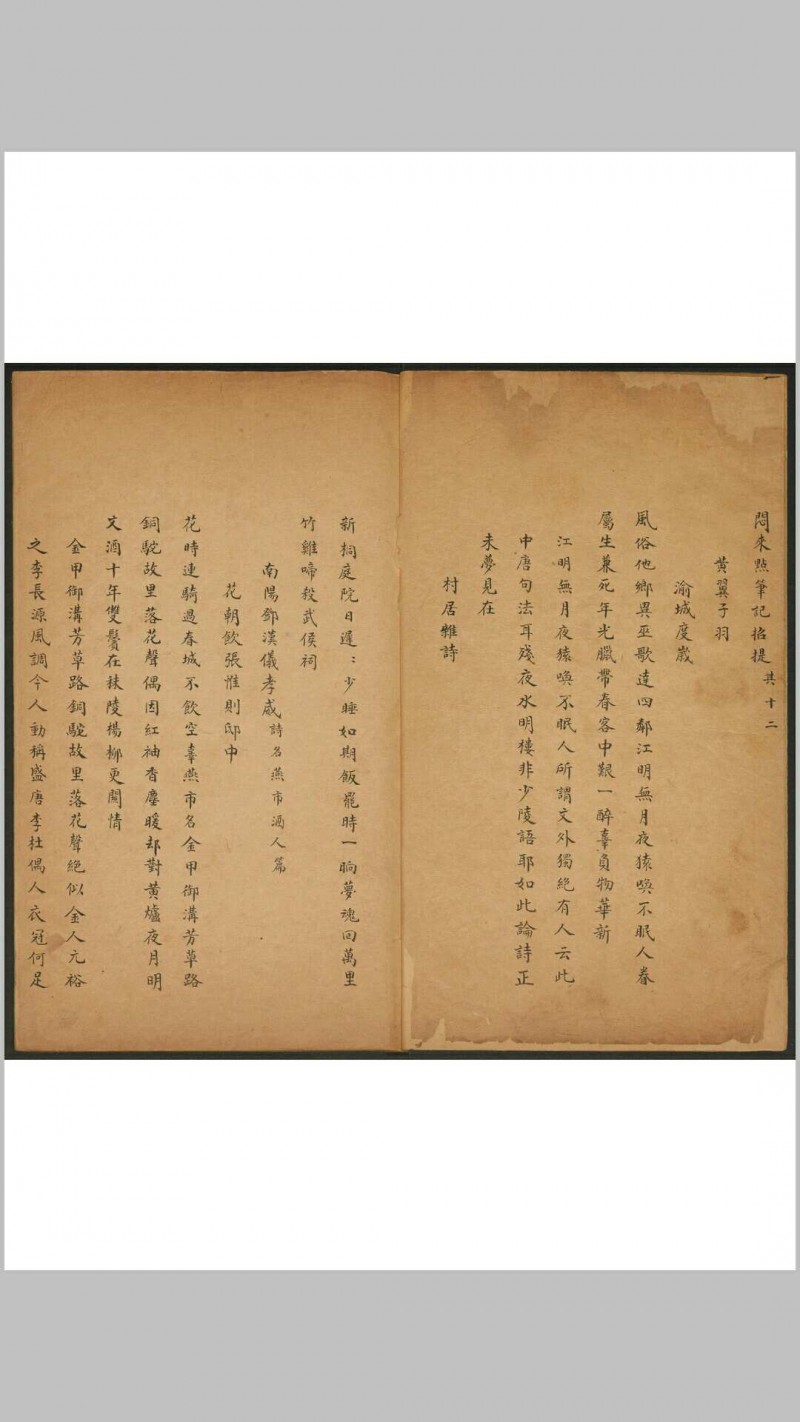 悶來㸃筆記招提其十二
黃翼子羽
渝城度歲
風俗他鄉異巫歌達四鄰江明無月夜猿喚不眠人眷
屬生兼死年光臘帶春客中艱一醉辜負物華新
江明無月夜猿喚不眠人所謂文外獨絶有人云此
中唐句法耳殘夜水明樓非少陵語耶如此論詩正
未夢見在
村居雜詩
新桐庭院日遲〻少睡如期飯罷時一晌夢魂回萬里
竹雞啼殺武侯祠
南陽鄧漢儀孝威詩名燕市酒人篇
花朝飲張惟則邸中
花時連騎過春城不飲空辜燕市名金甲御溝芳草路
銅駝故里落花聲偶因紅袖香塵暖却對黃爐夜月明
文酒十年雙鬢在秣陵楊柳更關情
金甲御溝芳草路銅駝故里落花聲絕似金人元裕
之李長源風調今人動稱盛唐李杜偶人衣冠何足